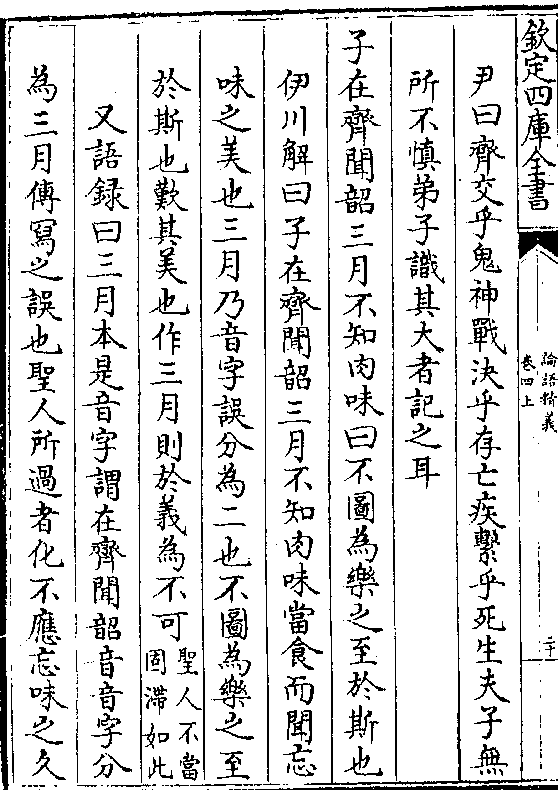 欽定四庫全書
論語精義
卷四上
二十
尹曰齊交乎鬼神戰決乎存亡疾繫乎死生夫子無
所不慎弟子識其大者記之耳
子在齊聞韶三月不知肉味曰不圖為樂之至於斯也
伊川解曰子在齊聞韶三月不知肉味當食而聞忘
味之美也三月乃音字誤分為二也不圖為樂之至
於斯也歎其美也作三月則於義為不可聖人不當
固滯如此
又語録曰三月本是音字謂在齊聞韶音音字分
為三月傳寫之誤也聖人所過者化不應忘味之久